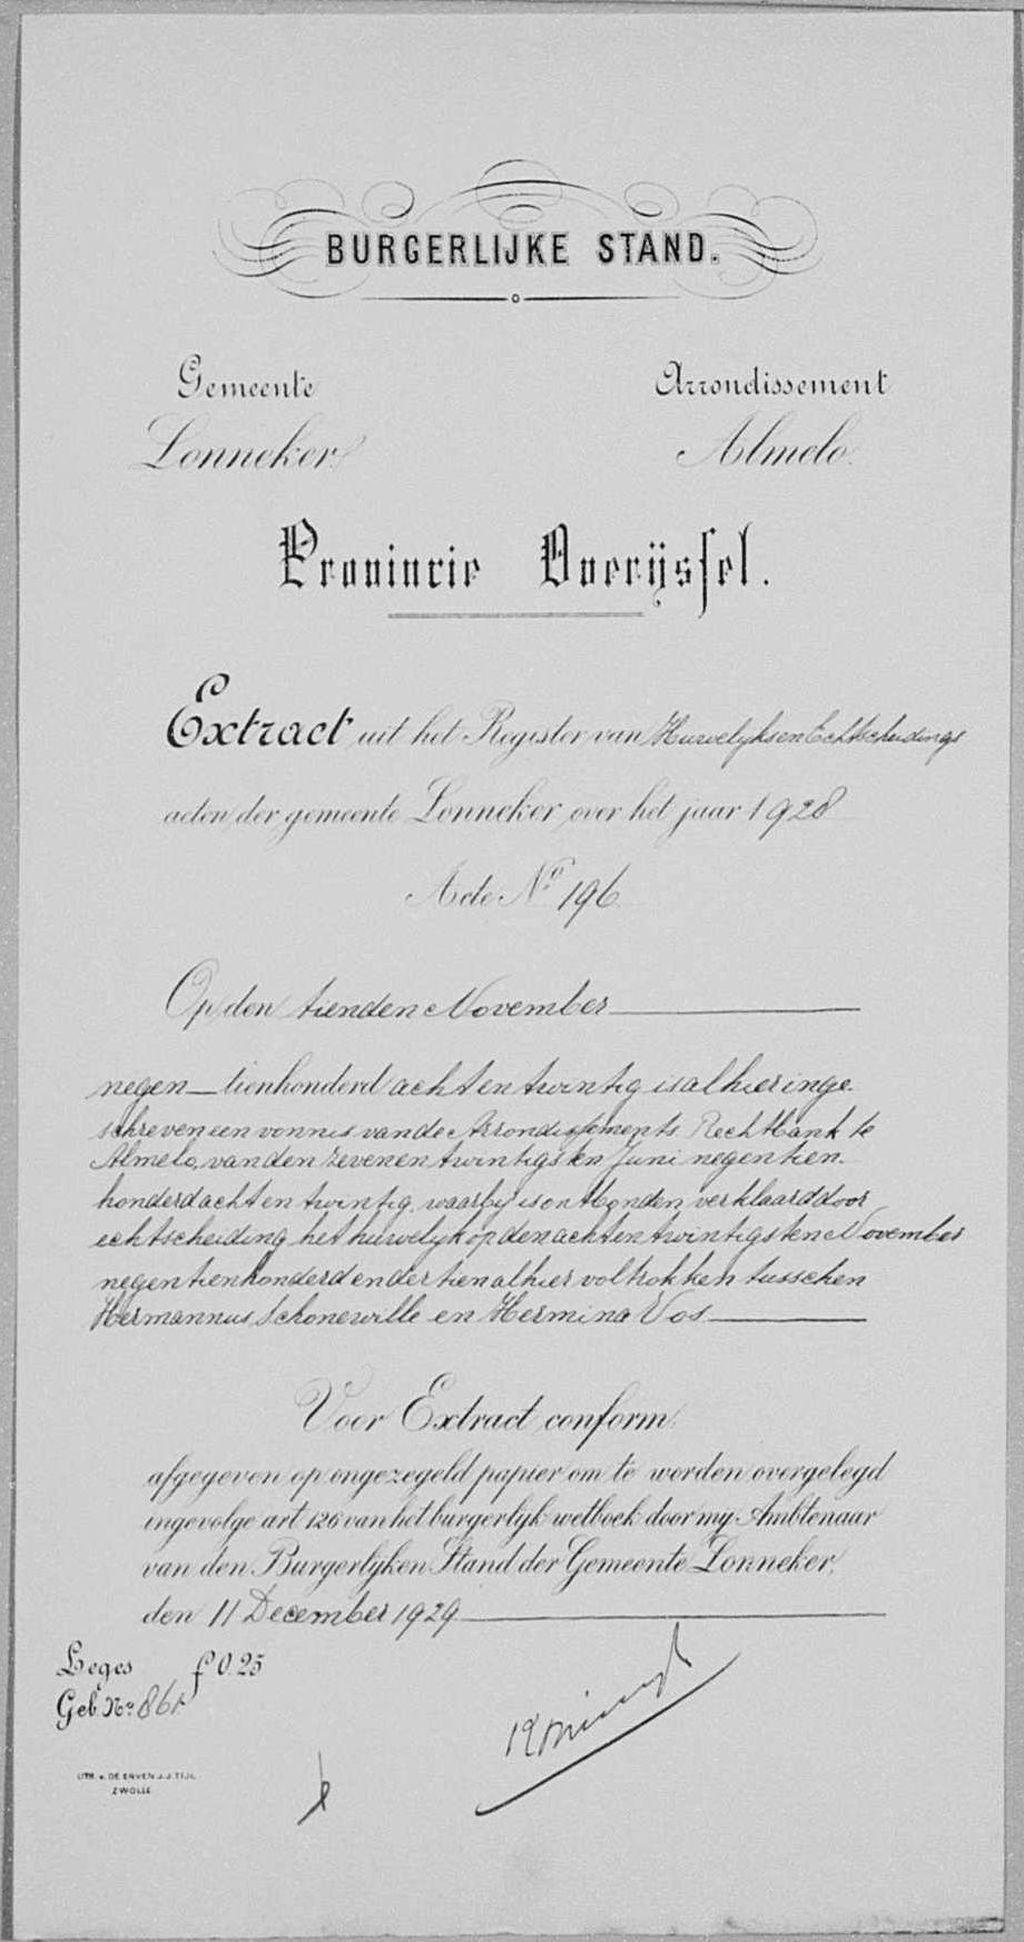 BURGERLIJKE STAND.
Gemeente Arrondissement
Lonneker. Almelo.
Provincie Overijssel.
Extract uit het Register van Huwelyks en Echtscheidings
acten der gemeente Lonneker over het jaar 1928
Acte No 196
Op den tienden November
negen-tienhonderd acht en twintig is alhier inge-
schreven een vonnis van de Arrondissements Rechtbank te
Almelo, van den zeven en twintigsten Juni negentien-
honderd acht en twintig, waarby is ontbonden verklaard door
echtscheiding het huwelyk op den acht en twintigsten November
negentienhonderd en dertien alhier voltrokken tusschen
Hermannus Schonewille en Hermina Vos
Voor Extract conform.
afgegeven op ongezegeld papier om te worden overgelegd
ingevolge art 126 van het burgerlyk wetboek door my Ambtenaar
van den Burgerlyken Stand der Gemeente Lonneker,
den 11 December 1929
Leges f 0.25
Geb. No
LITH. v. DE ERVEN J.J. TIJL
ZWOLLE